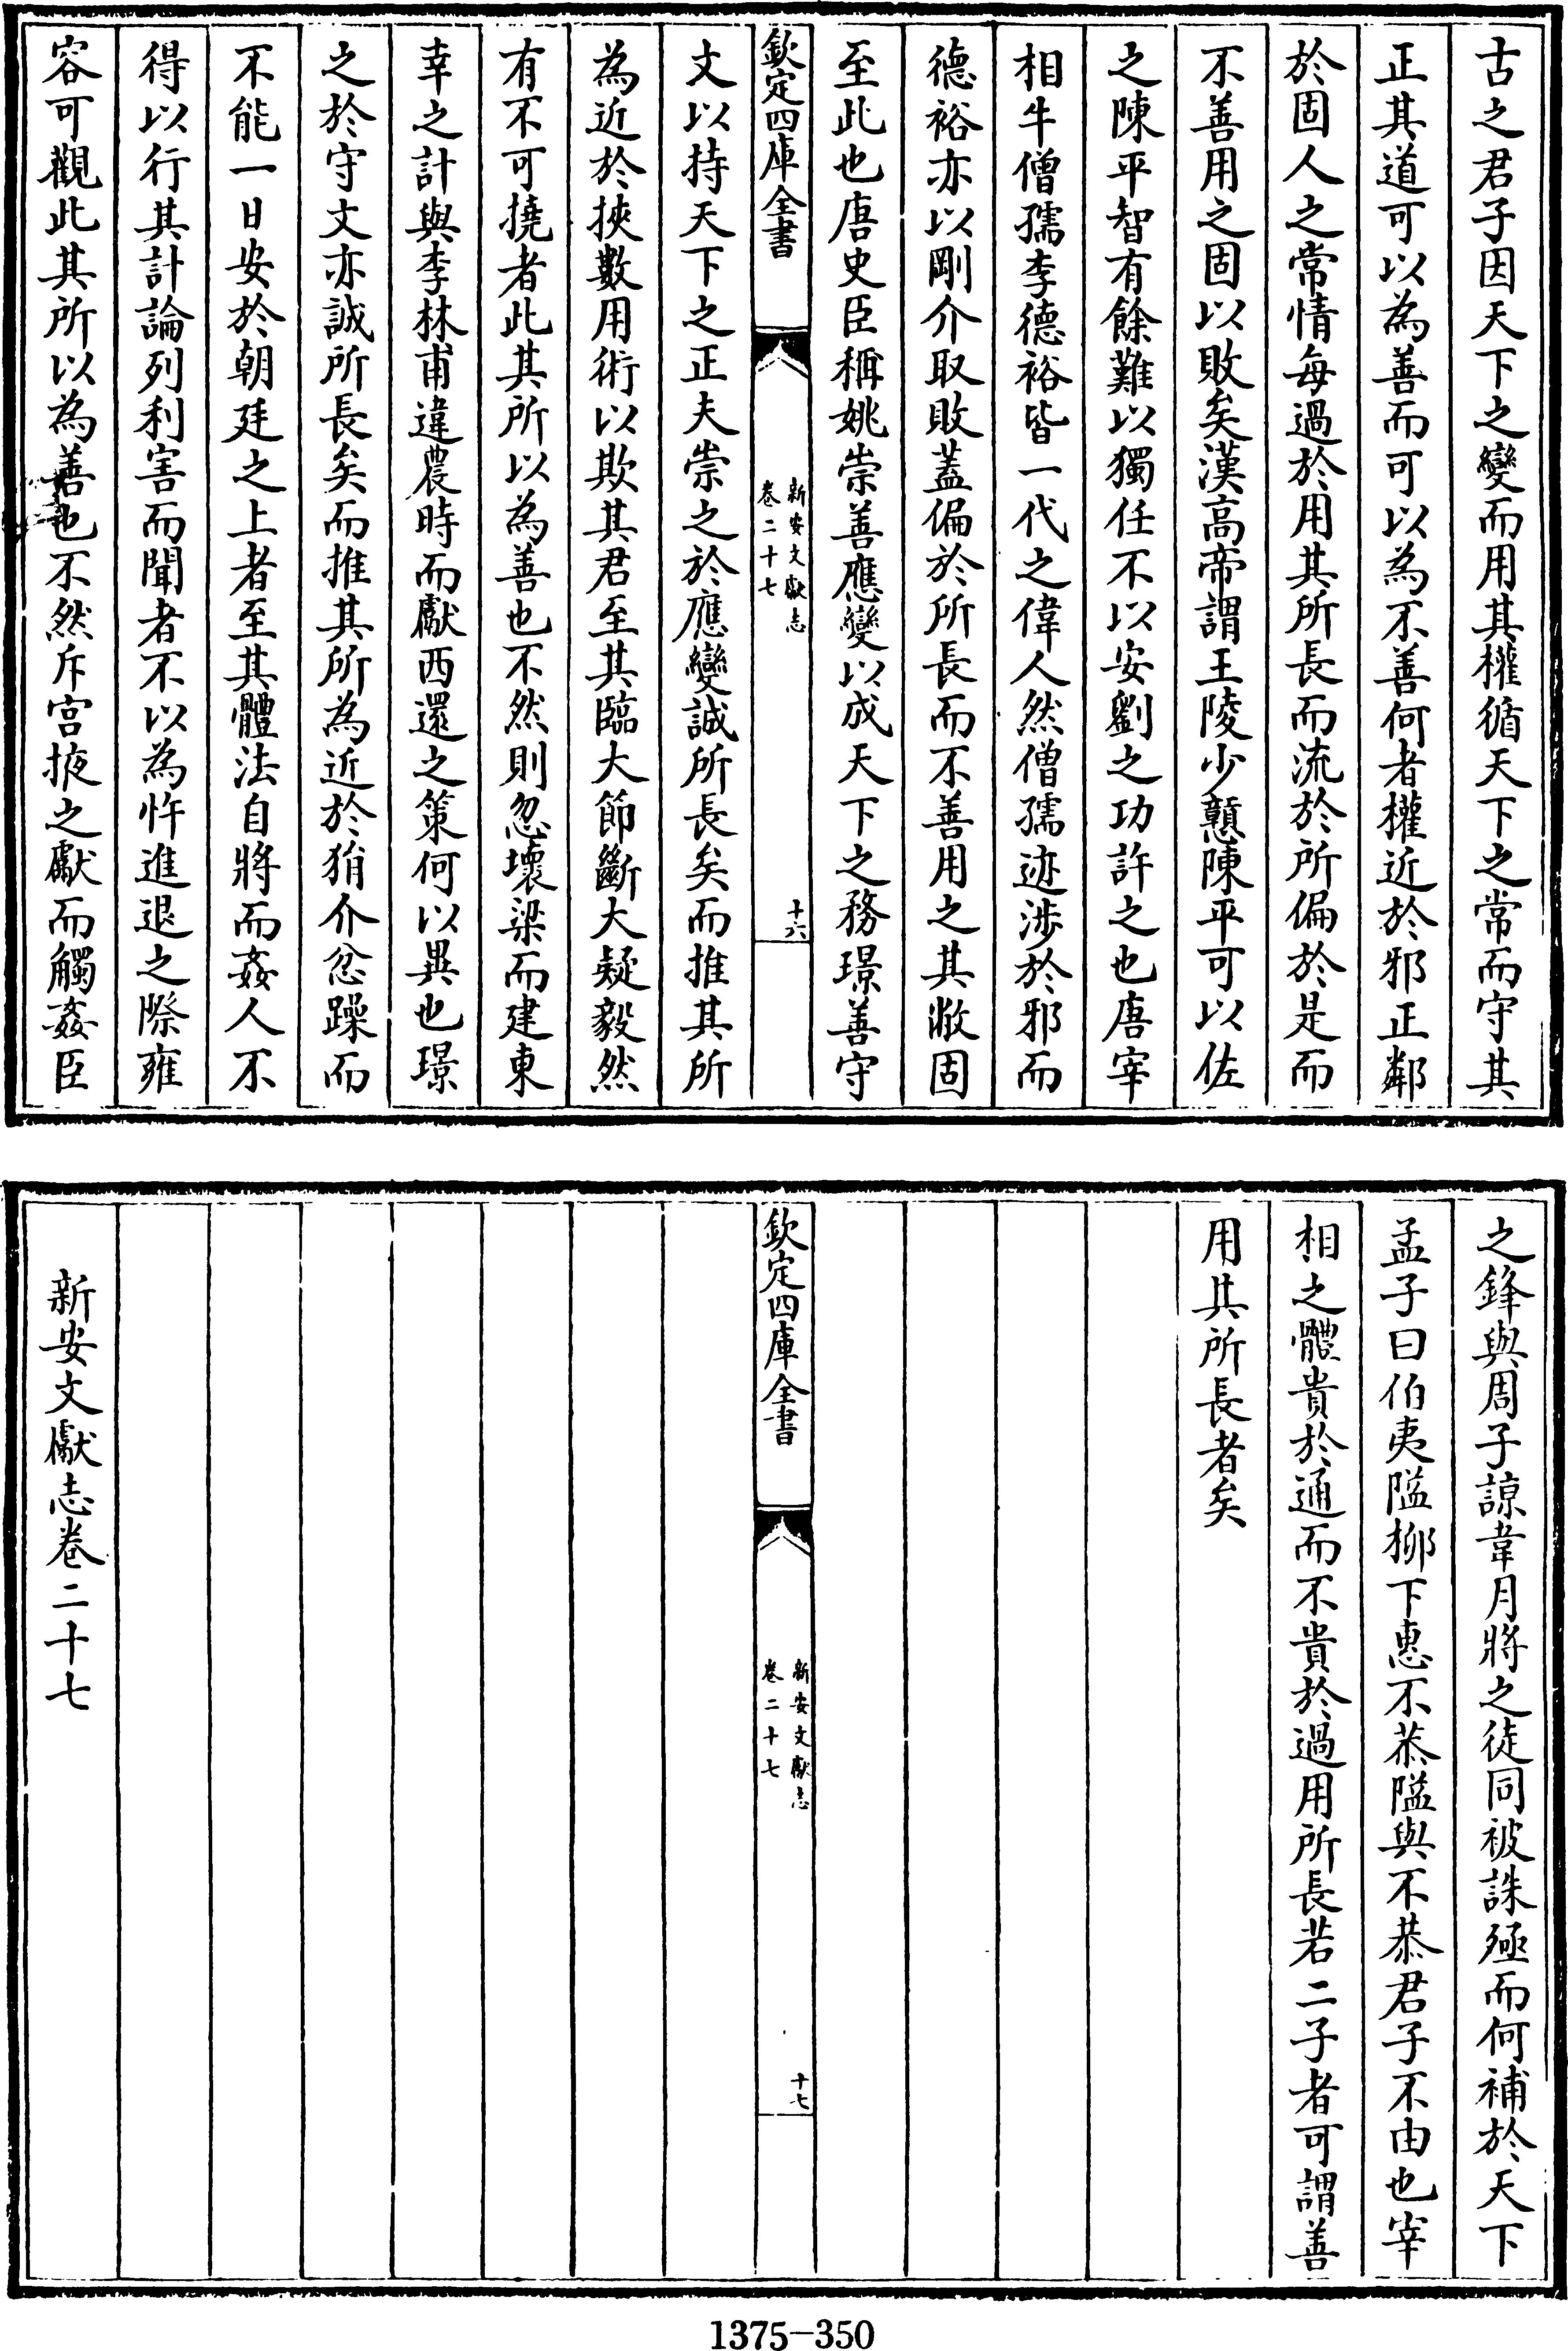 古之君子因天下之變而用其權循天下之常而守其
正其道可以為善而可以為不善何者權近於邪正鄰
於固人之常情每過於用其所長而流於所偏於是而
不善用之固以敗矣漢高帝謂王陵少戇陳平可以佐
之陳平智有餘難以獨任不以安劉之功許之也唐宰
相牛僧孺李德裕皆一代之偉人然僧孺迹涉於邪而
德裕亦以剛介取敗蓋偏於所長而不善用之其敝固
至此也唐史臣稱姚崇善應變以成天下之務璟善守
欽定四庫全書
新安文獻志
卷二十七
十六
文以持天下之正夫崇之於應變誠所長矣而推其所
為近於挾數用術以欺其君至其臨大節斷大疑毅然
有不可撓者此其所以為善也不然則忽壞梁而建東
幸之計與李林甫違農時而獻西還之策何以異也璟
之於守文亦誠所長矣而推其所為近於狷介忿躁而
不能一日安於朝廷之上者至其體法自將而姦人不
得以行其計論列利害而聞者不以為忤進退之際雍
容可觀此其所以為善也不然斥宮掖之獻而觸姦臣
之鋒與周子諒韋月將之徒同被誅殛而何補於天下
孟子曰伯夷隘柳下惠不恭隘與不恭君子不由也宰
相之體貴於通而不貴於過用所長若二子者可謂善
用其所長者矣
欽定四庫全書
新安文獻志
卷二十七
十七
新安文獻志卷二十七
1375-350